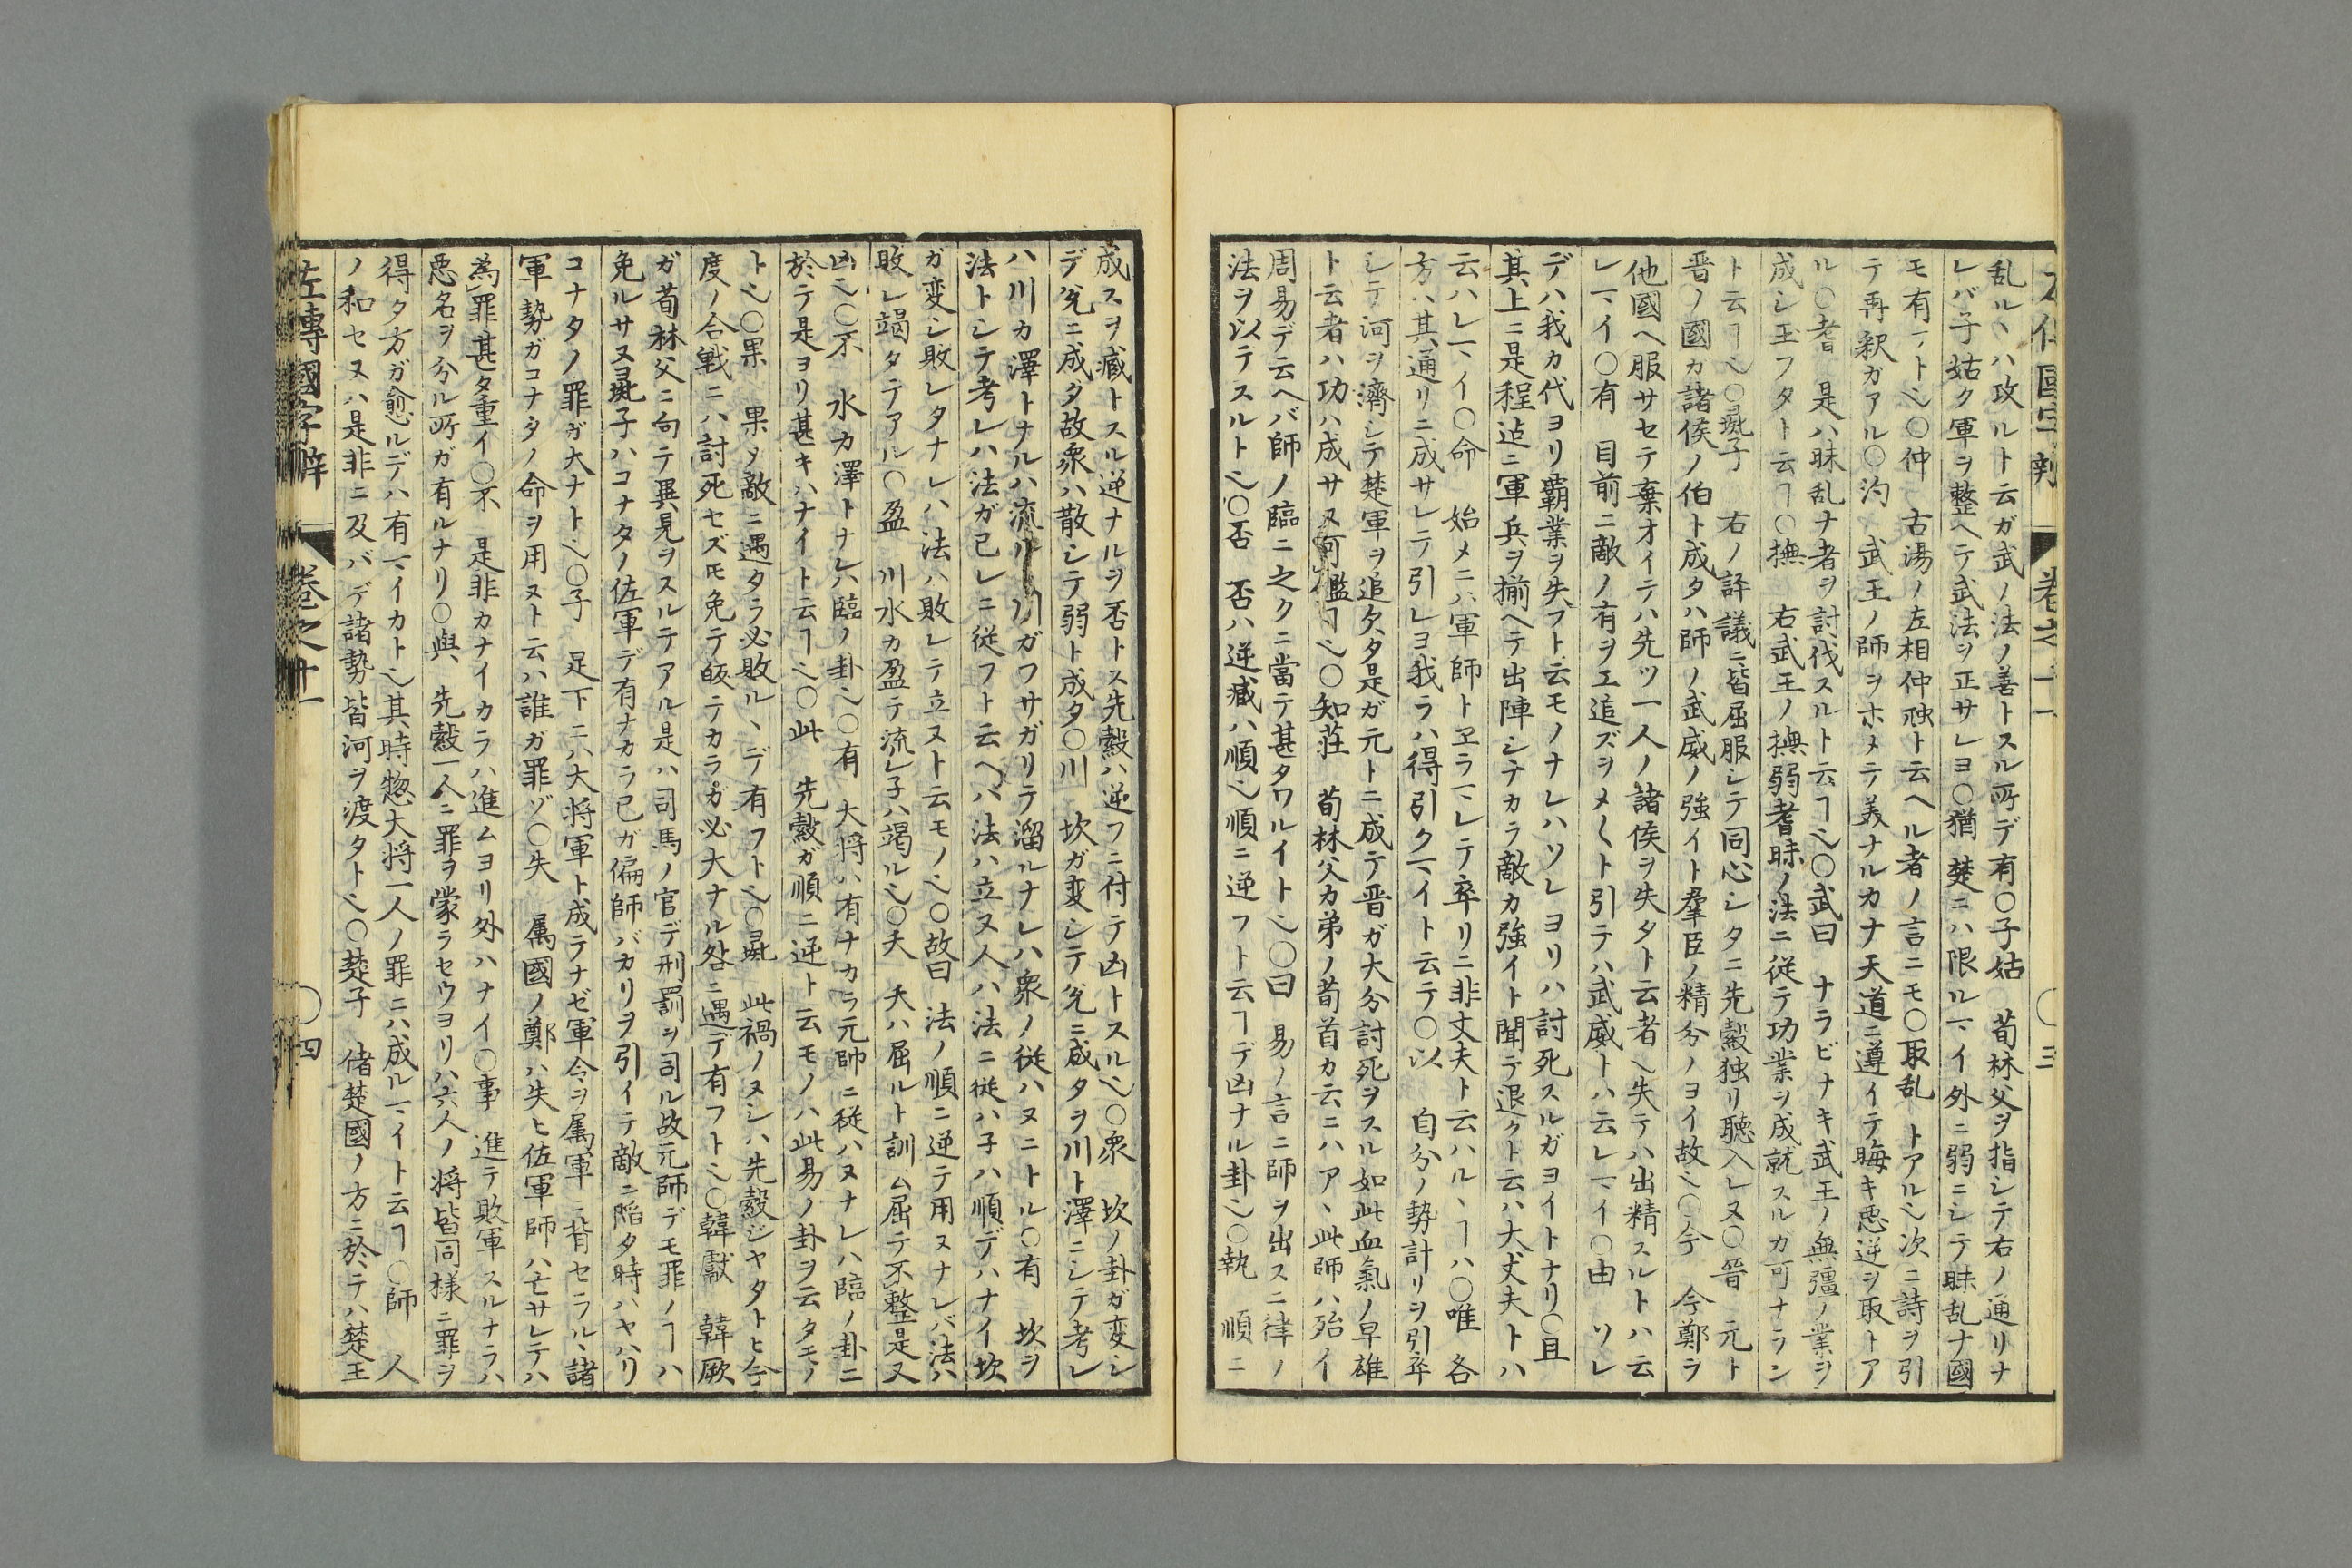 乱ルヽハ攻ルト云ガ武ノ法ノ善トスル所デ有〇子姑　荀林父ヲ指シテ右ノ通リナ
レバ子姑ク軍ヲ整ヘテ武法ヲ正サレヨ〇猶　楚ニハ限ルヿイ外ニ弱ニシテ昧乱ナ國
モ有ヿト也〇仲　古湯ノ左相仲虺ト云ヘル者ノ言ニモ〇取乱　トアル也次ニ詩ヲ引
テ再釈ガアル〇汋　武王ノ師ヲホメテ美ナルカナ天道ニ遵イテ晦キ悪逆ヲ取トア
ル〇耆　是ハ昧乱ナ者ヲ討伐スルト云ヿ也〇武曰　ナラビナキ武王ノ無彊ノ業ヲ
成シ玉フタト云ヿ〇撫　右武王ノ撫弱耆昧ノ法ニ従テ功業ヲ成就スルカ可ナラン
ト云ヿ也〇彘子　右ノ評議ニ皆屈服シテ同心シタニ先縠独リ聴入レヌ〇晋　元ト
晋ノ國ガ諸侯ノ伯ト成タハ師ノ武威ノ強イト羣臣ノ精分ノヨイ故也〇今　今鄭ヲ
他國ヘ服サセテ棄オイテハ先ツ一人ノ諸侯ヲ失タト云者也失テハ出精スルトハ云
レヿイ〇有　目前ニ敵ノ有ヲエ追ズヲメ〱ト引テハ武威トハ云レヿイ〇由　ソレ
デハ我カ代ヨリ覇業ヲ失フト云モノナレハソレヨリハ討死スルガヨイトナリ〇且
其上ニ是程迠ニ軍兵ヲ揃ヘテ出陣シナカラ敵カ強イト聞テ退クト云ハ大丈夫トハ
云ハレヿイ〇命　始メニハ軍師トヱラヿレテ卒リニ非丈夫ト云ハルヽヿハ〇唯　各
方ハ其通リニ成サレテ引レヨ我ラハ得引クヿイト云テ〇以　自分ノ勢計リヲ引卒
シテ河ヲ濟シテ楚軍ヲ追タ是ガ元トニ成テ晋ガ大分討死ヲスル如此血氣ノ早雄
ト云者ハ功ハ成サヌ可鑑ヿ也〇知荘　荀林父カ弟ノ荀首カ云ニハアヽ此師ハ殆イ
周易デ云ヘバ師ノ臨ニ之クニ當テ甚タワルイト也〇曰　易ノ言ニ師ヲ出スニ律ノ
法ヲ以テスルト也〇否　否ハ逆臧ハ順也順ニ逆フト云ヿデ凶ナル卦也〇執　順ニ
成スヲ臧トスル逆ナルヲ否トス先縠ハ逆フニ付テ凶トスル也〇衆　坎ノ卦ガ変シ
デ兌ニ成タ故衆ハ散シテ弱ト成タ〇川　坎ガ変シテ兌ニ成タヲ川ト澤ニシテ考レ
ハ川カ澤トナルハ流リ川ガフサガリテ溜ルナレハ衆ノ従ハヌニトル〇有　坎ヲ
法トシテ考レハ法ガ己レニ従フト云ヘバ法ハ立ヌ人ハ法ニ従ハ子ハ順デハナイ坎
ガ変シ敗レタナレハ法ハ敗レテ立ヌト云モノ也〇故曰　法ノ順ニ逆テ用ヌナレバ法ハ
敗レ竭タテアル〇盈　川水カ盈テ流レ子ハ竭ル也〇夭　夭ハ屈ルト訓ム屈テ不整是又
凶也〇不　水カ澤トナレハ臨ノ卦也〇有　大将ハ有ナカラ元帥ニ従ハヌナレハ臨ノ卦ニ
於テ是ヨリ甚キハナイト云ヿ也〇此　先縠ガ順ニ逆ト云モノハ此易ノ卦ヲ云タモノ
ト也〇果　果ノ敵ニ遇タラ必敗ルヽデ有フト也〇彘　此禍ノヌシハ先縠ジヤタトヒ今
度ノ合戦ニハ討死セズモ免テ皈テカラガ必大ナル咎ニ遇デ有フト也〇韓獻　韓厥
ガ荀林父ニ向テ異見ヲスルテアル是ハ司馬ノ官デ刑罰ヲ司ル故元師デモ罪ノヿハ
免ルサヌ〇彘子ハコナタノ佐軍デ有ナカラ己ガ偏師バカリヲ引イテ敵ニ陥タ時ハヤハリ
コナタノ罪ガ大ナト也〇子　足下ニハ大将軍ト成テナゼ軍令ヲ属軍ニ背セラルヽ諸
軍勢ガコナタノ命ヲ用ヌト云ハ誰ガ罪ゾ〇失　属國ノ鄭ハ失ヒ佐軍師ハ亡サレテハ
為罪甚タ重イ〇不　是非カナイカラハ進ムヨリ外ハナイ〇事　進テ敗軍スルナラハ
悪名ヲ分ル所ガ有ルナリ〇與　先縠一人ニ罪ヲ蒙ラセウヨリハ六人ノ将皆同様ニ罪ヲ
得タ方ガ愈ルデハ有ヿイカト也其時惣大将一人ノ罪ニハ成ルヿイト云ヿ〇師　人
ノ和セヌハ是非ニ及バデ諸勢皆河ヲ渡タト也〇楚子　偖楚國ノ方ニ於テハ楚王
左傳國字辨　巻之十一　〇四